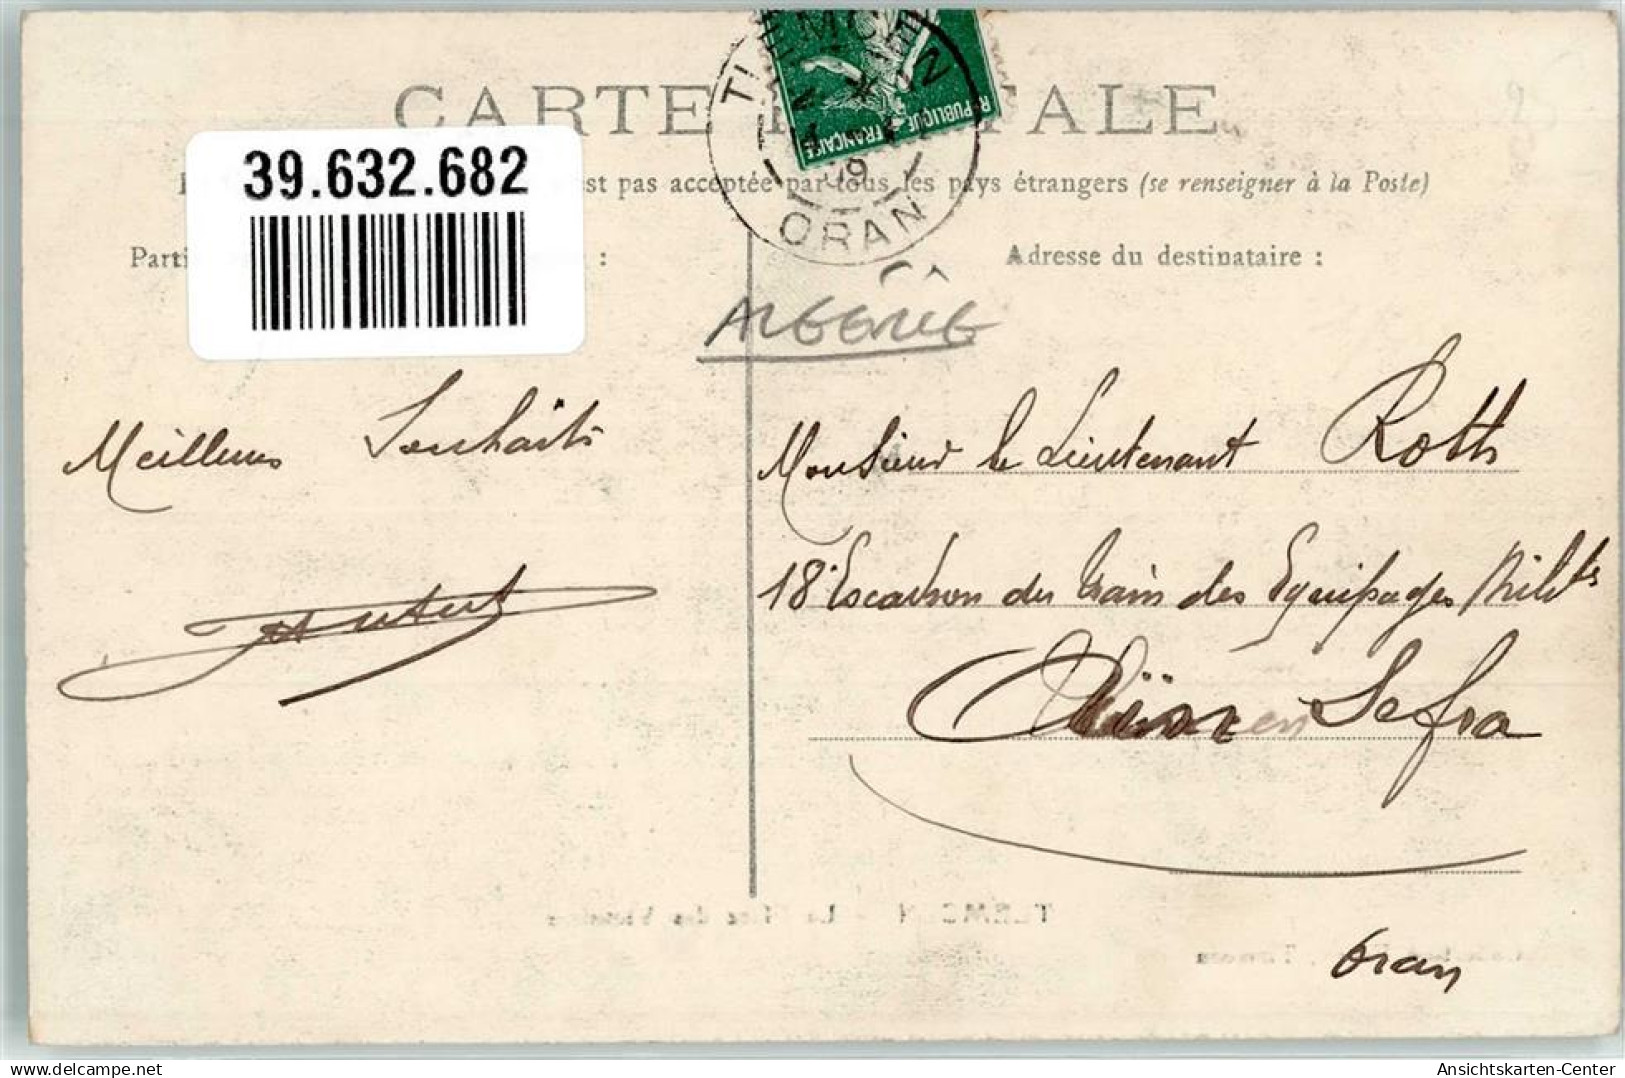 CARTE TALE
39.632.682
est pas acceptée par tous les pays étrangers (se renseigner à la Poste)
TLEMCEN
09
ORAN
REPUBLIQUE FRANÇAISE
Parti :
Adresse du destinataire :
ALGERIE
Meilleurs Souhaits
Monsieur le Lieutenant Roth
18e Escadron du train des Equipages Milit
Aïn Sefra
Oran
TLEMCEN - La des
Ansichtskarten-Center